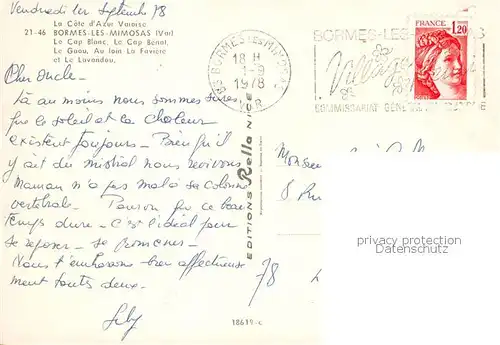 Vendredi 1er Septembre 78
La Côte d'Azur Varoise
21-46 BORMES-LES-MIMOSAS (Var)
Le Cap Blanc, Le Cap Bénat,
Le Gaou, Au loin La Favière
et Le Lavandou.
Cher oncle -
Là au moins nous sommes sûres
que le soleil et la chaleur
existent toujours - Bien qu'il
y ait du mistral nous revivons
Maman n'a pas mal à sa colonne
vertébrale - Pourvu que ce beau
temps dure - C'est l'idéal pour
se reposer - se promener -
Nous t'embrassons bien affectueuse
ment toutes deux -
83 BORMES LES MIMOSAS
18 H
1-9
1978
VAR
BORMES-LES
Village
COMMISSARIAT GÉNÉRAL
FRANCE
1,20
EDITIONS Rella NICE
Monsieur
8 Rue
78
18619-c
copyright protected
Datenschutz